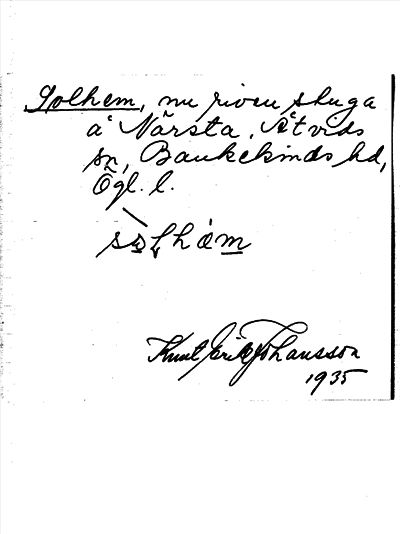 Solhem, nu riven stuga
å Närsta, Åtvids
sn, Bankekinds hd,
Ögl. l.
Knut Erik Johansson
1935